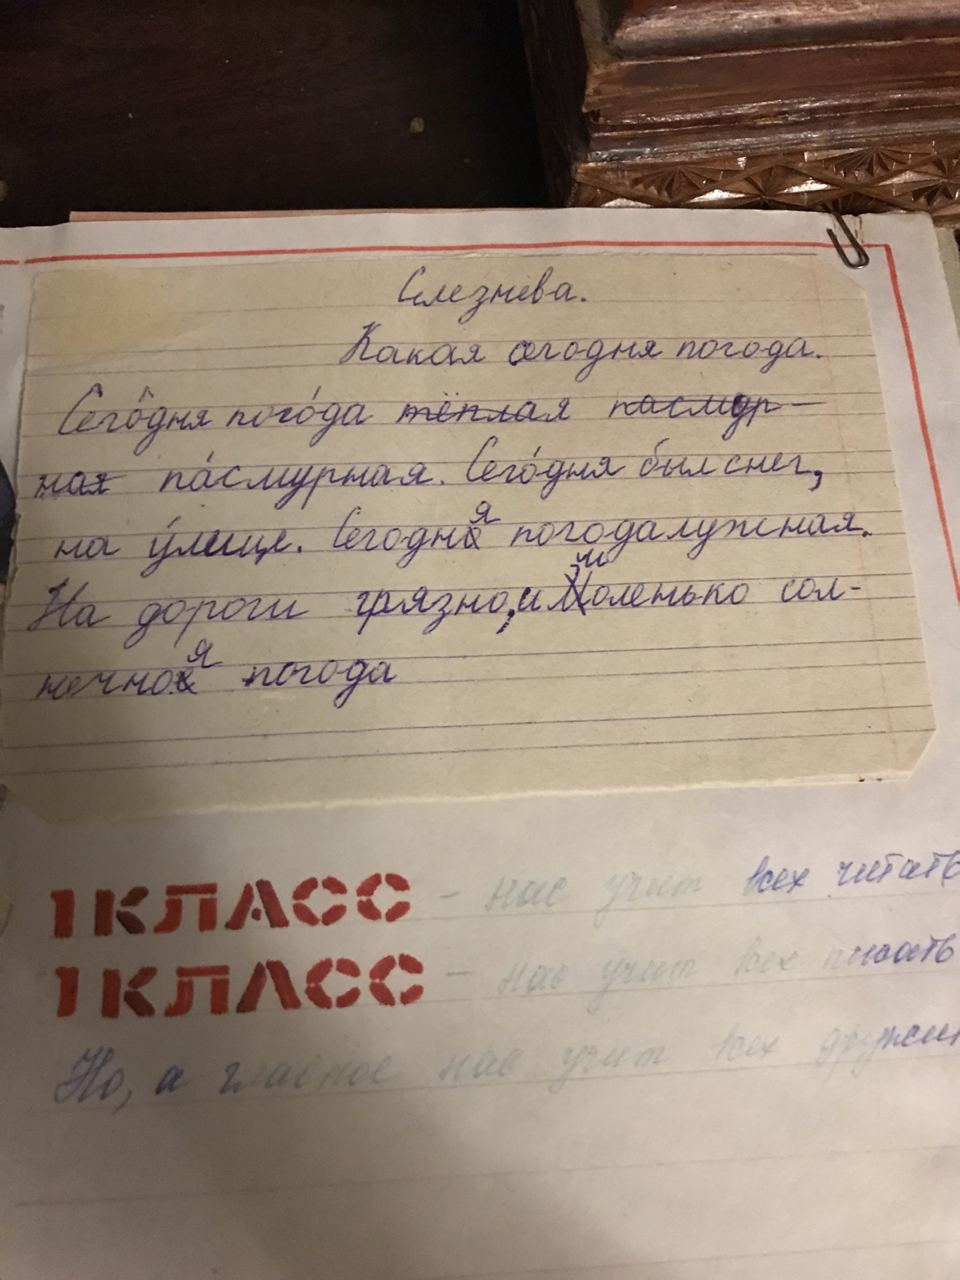 Селезнева.
Какая сегодня погода.
Сего́дня пого́да тёплая пасмур-
ная па́смурная. Сего́дня был снег,
на у́лице. Сегодня погода лужная.
На дороги грязно, и моленько сол-
нечноя погода
1 КЛАСС - нас учит всех читать
1 КЛАСС - нас учит всех писать
Но, а главное нас учит всех